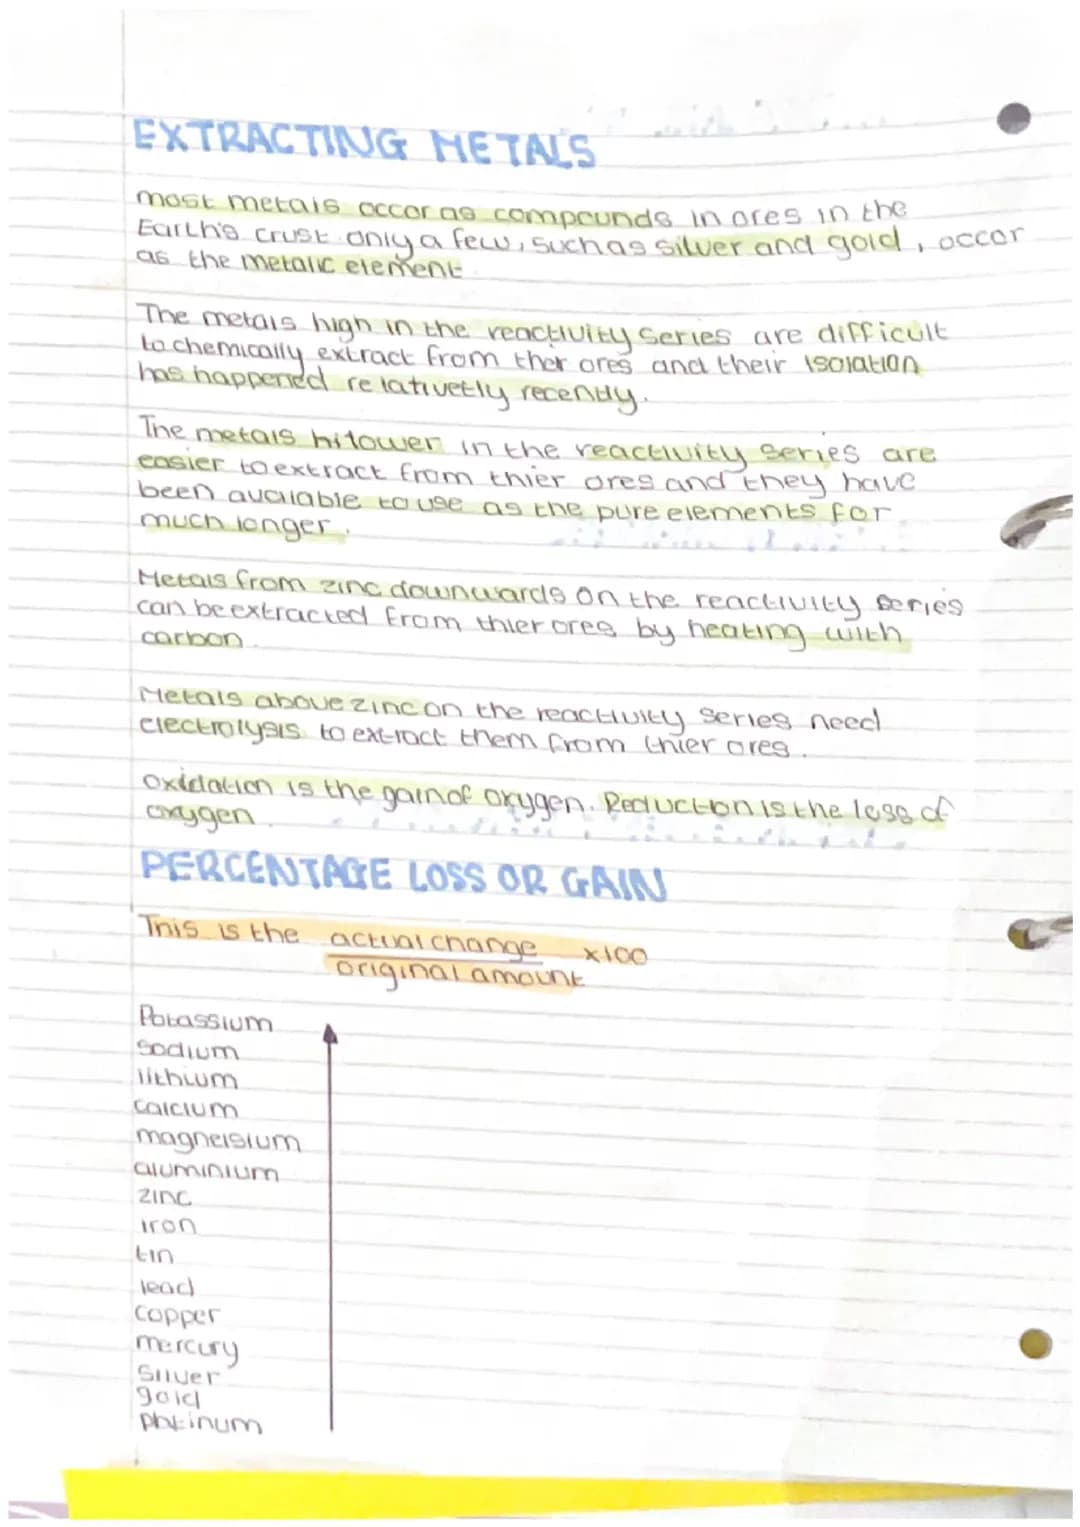 EXTRACTING METALS
most metals occor as compounds in ores in the
Earth's crust only a few, such as silver and gold, occor
as the metalic element
The metals high in the reactivity series are difficult
to chemically extract from ther ores and their isolation
has happened relativetly recently.
The metals hitower in the reactivity series are
easier to extract from thier ores and they have
been avaiable to use as the pure elements for
much longer.
Metals from zinc downwards on the reactivity series
can be extracted from thier ores by heating with
carbon.
Metals above zinc on the reactivity series need
electrolysis to extract them from thier ores.
oxidation is the gain of oxygen. Reduction is the loss of
oxygen.
PERCENTAGE LOSS OR GAIN
This is the actual change x100
original amount
Potassium
sodium
lithium
calcium
magneisium
aluminium
zinc
iron
tin
lead
copper
mercury
silver
gold
platinum